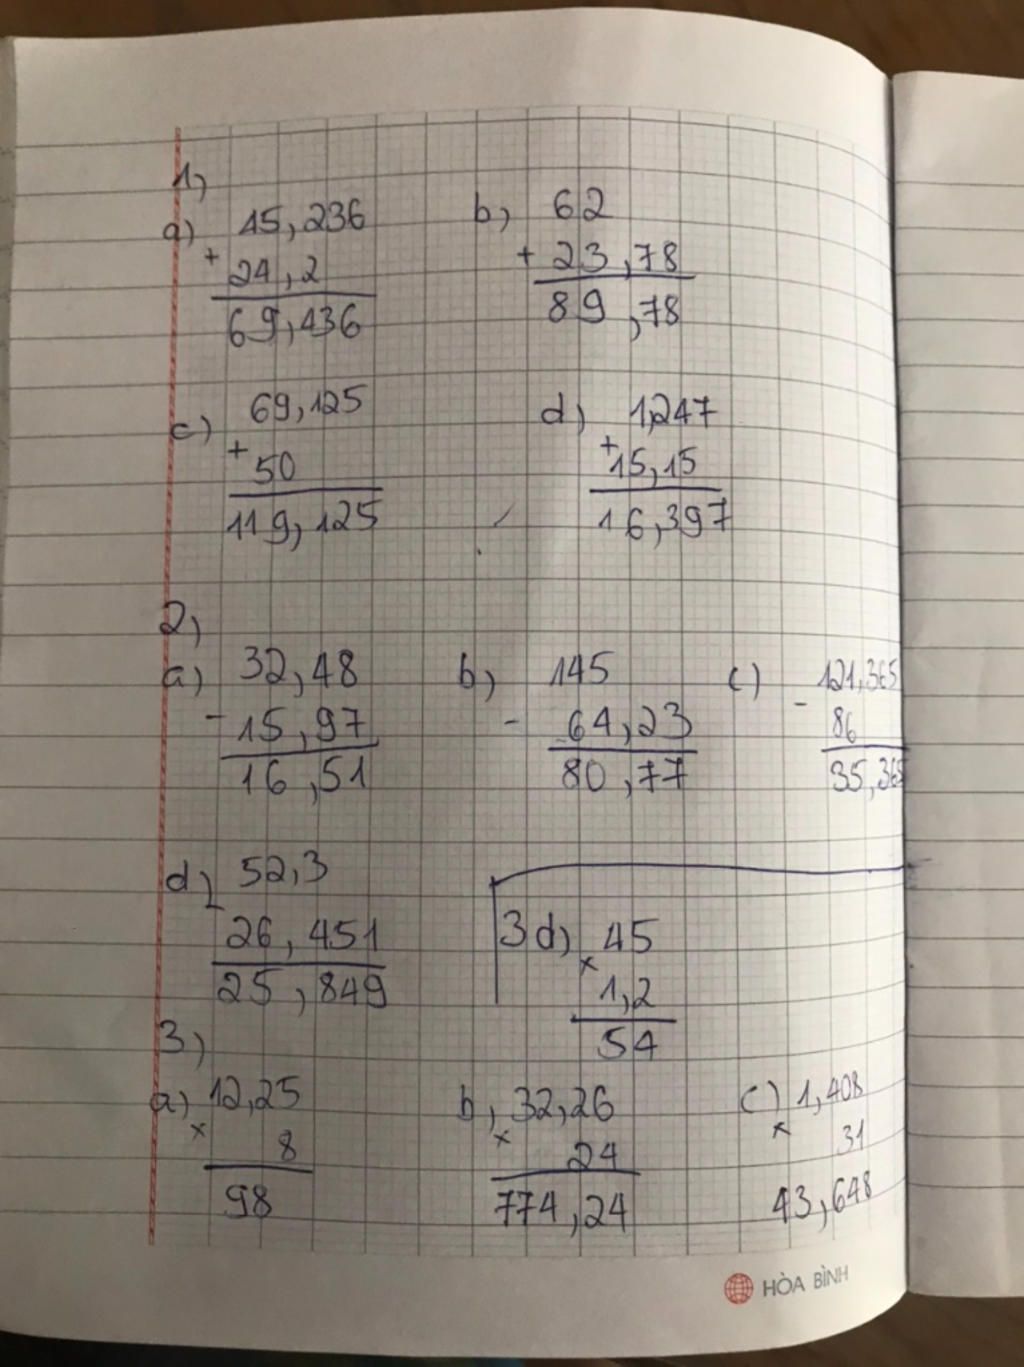 1,
a) 45,236
+
24,2
69,436
b, 62
+ 23,78
89,78
c) 69,125
+
50
119,125
d) 1,247
+
15,15
16,397
2,
a) 32,48
- 15,97
16,51
b, 145
- 64,23
80,77
c) 121,365
-
86
35,365
d, 52,3
-
26,451
25,849
3d) 45
x
1,2
54
3)
a) 12,25
x
8
98
b, 32,26
x
24
774,24
c) 1,408
x
31
43,648
HÒA BÌNH